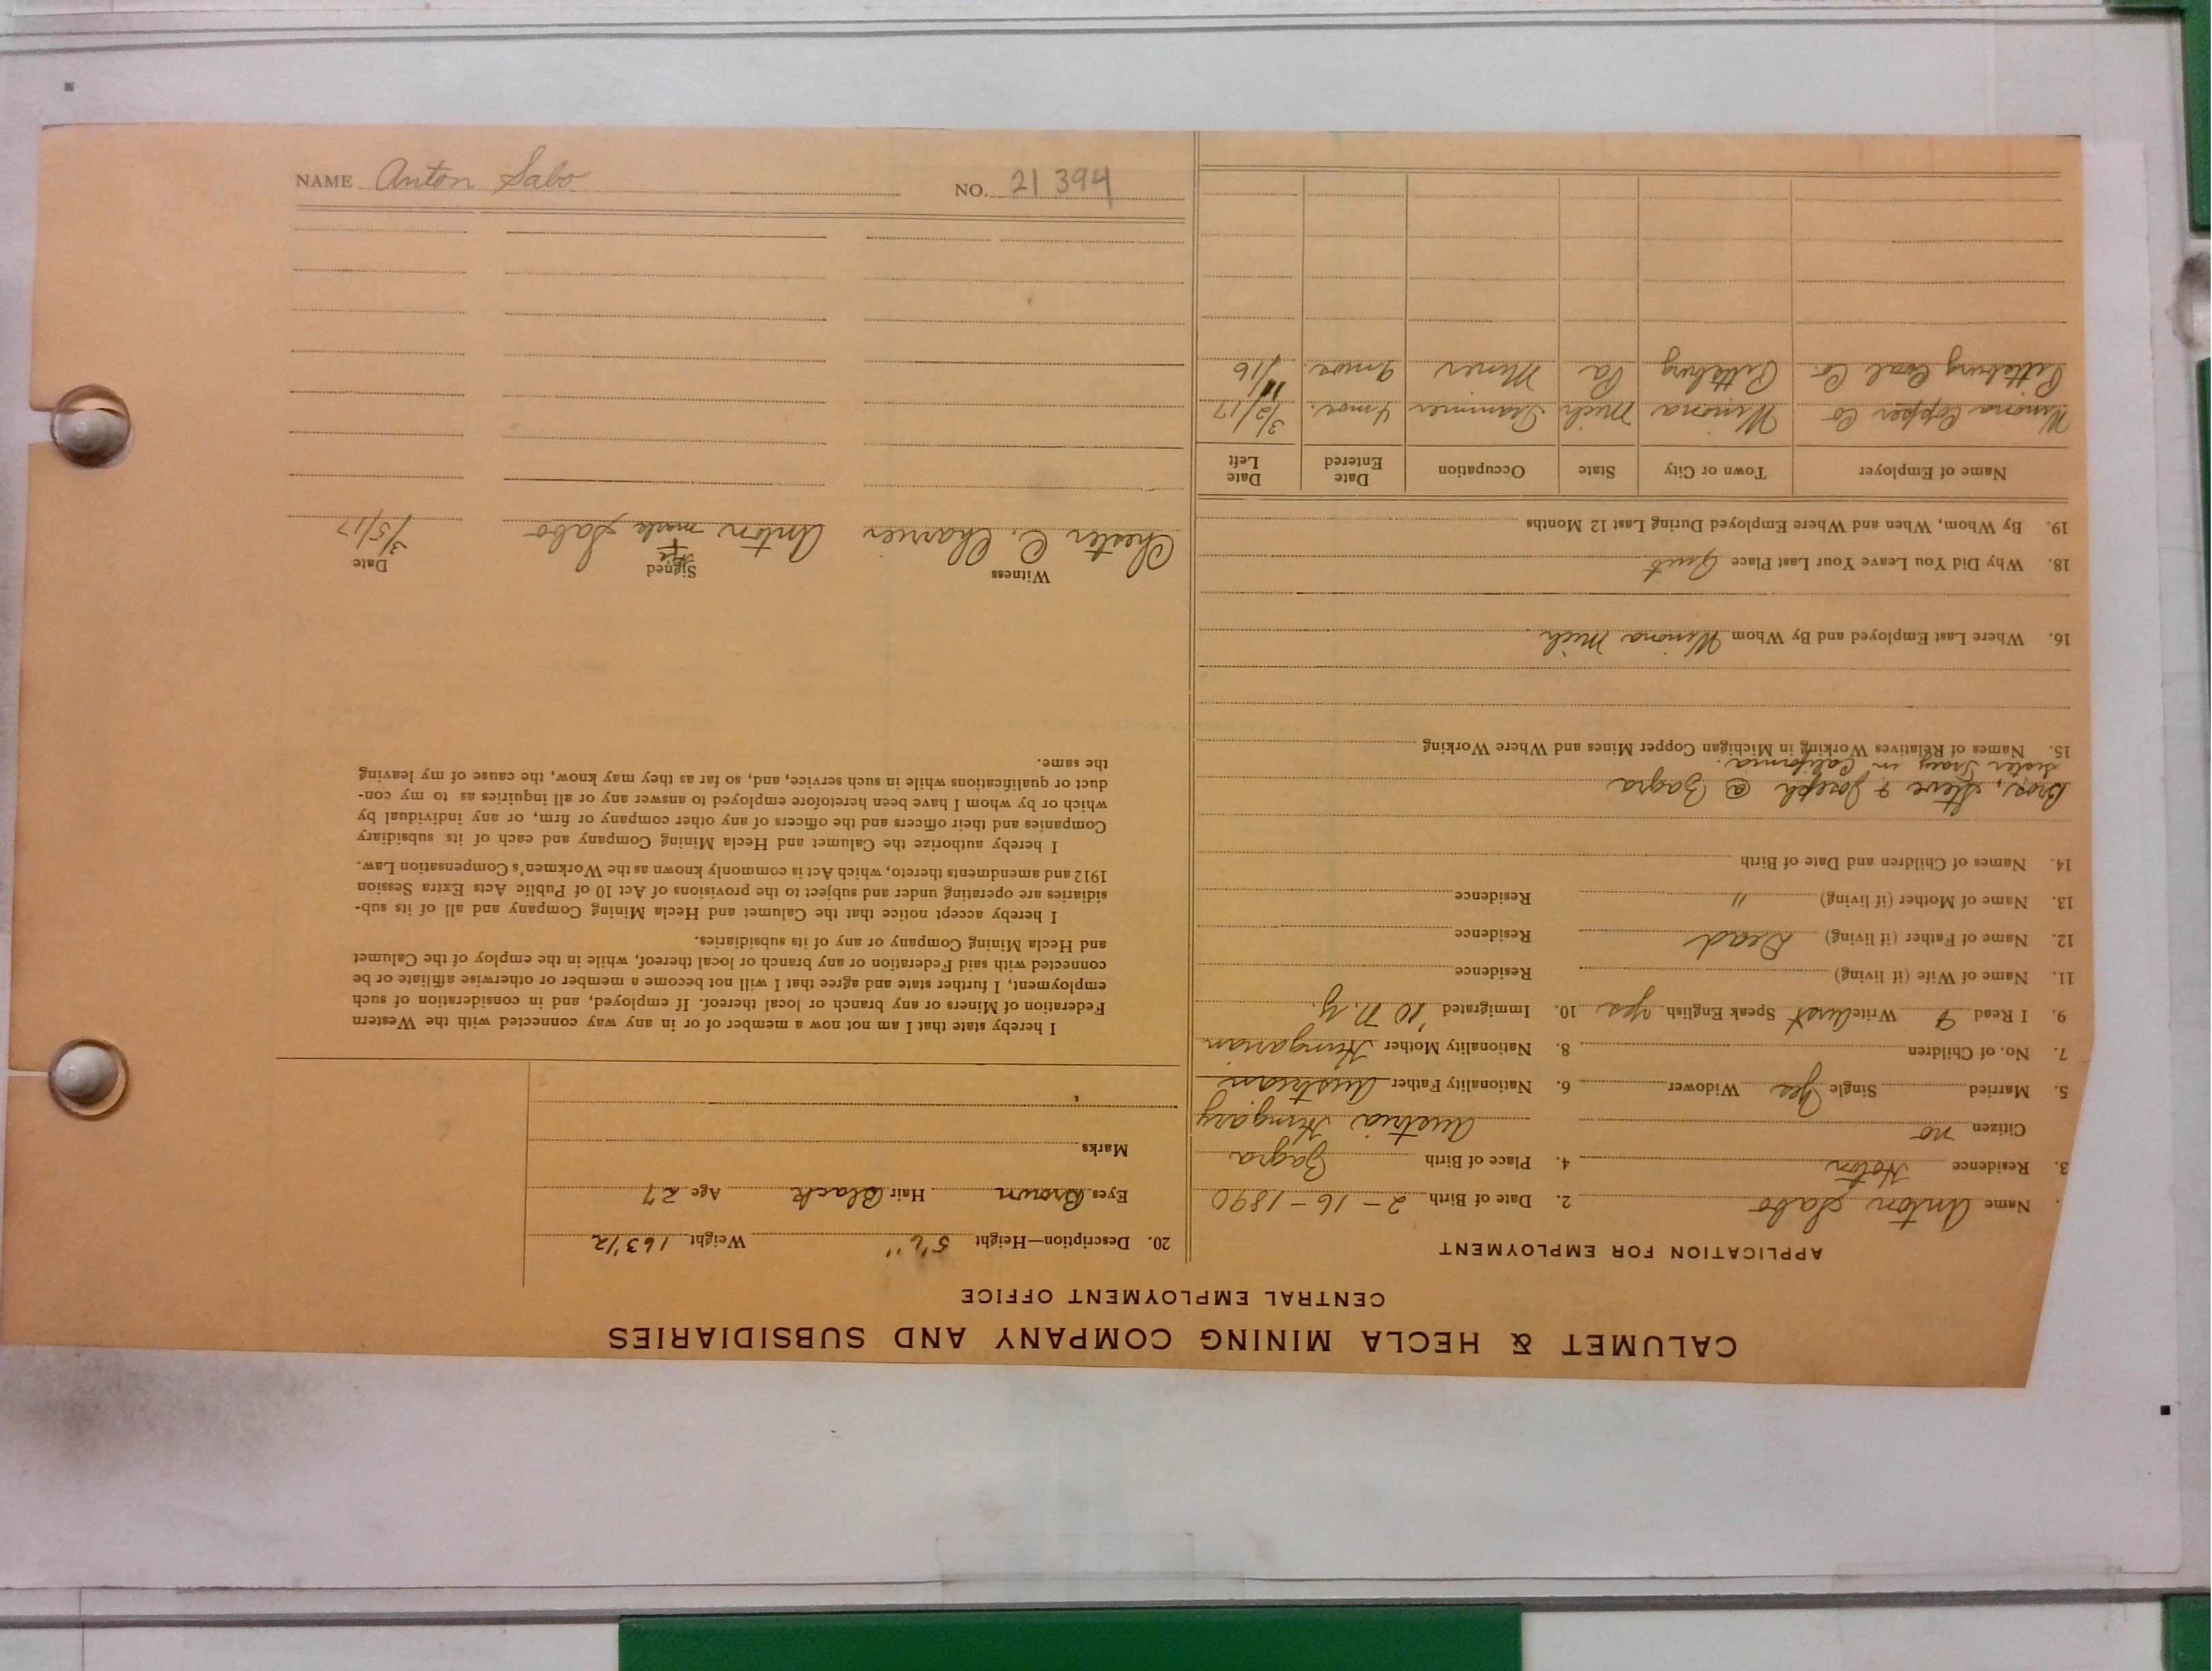 CALUMET & HECLA MINING COMPANY AND SUBSIDIARIES
CENTRAL EMPLOYMENT OFFICE
APPLICATION FOR EMPLOYMENT
Name Anton Sabo 2. Date of Birth 2-16-1890
3. Residence 4. Place of Birth Zagra
Citizen no Austria Hungary
5. Married Single Yes Widower 6. Nationality Father Austrian
7. No. of Children 8. Nationality Mother Hungarian
9. I Read & Write Aust Speak English yes 10. Immigrated '10 N.Y.
11. Name of Wife (if living) Residence
12. Name of Father (if living) Dead Residence
13. Name of Mother (if living) " Residence
14. Names of Children and Date of Birth
Bros, Steve & Joseph @ Zagra
Sister in California.
15. Names of Relatives Working in Michigan Copper Mines and Where Working
16. Where Last Employed and By Whom Winona Mich
18. Why Did You Leave Your Last Place Quit
19. By Whom, When and Where Employed During Last 12 Months
Name of Employer Town or City State Occupation Date Entered Date Left
Winona Copper Co Winona Mich Trammer 4 mos. 3/2/17
Pittsburg Coal Co. Pittsburg Pa Miner 9 mos. 11/16
20. Description—Height 5'6" Weight 163 1/2
Eyes Brown Hair Black Age 27
Marks
I hereby state that I am not now a member of or in any way connected with the Western
Federation of Miners or any branch or local thereof. If employed, and in consideration of such
employment, I further state and agree that I will not become a member or otherwise affiliate or be
connected with said Federation or any branch or local thereof, while in the employ of the Calumet
and Hecla Mining Company or any of its subsidiaries.
I hereby accept notice that the Calumet and Hecla Mining Company and all of its sub-
sidiaries are operating under and subject to the provisions of Act 10 of Public Acts Extra Session
1912 and amendments thereto, which Act is commonly known as the Workmen's Compensation Law.
I hereby authorize the Calumet and Hecla Mining Company and each of its subsidiary
Companies and their officers and the officers of any other company or firm, or any individual by
which or by whom I have been heretofore employed to answer any or all inquiries as to my con-
duct or qualifications while in such service, and, so far as they may know, the cause of my leaving
the same.
Witness Signed Date
his
Chester C. Charrier Anton + mark Sabo 3/5/17
NAME Anton Sabo NO. 21 394